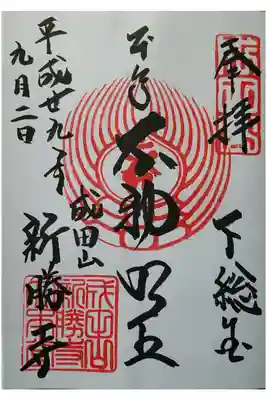 奉拝
下総国
本尊
不動明王
成田山
新勝寺
平成廿九年
九月二日